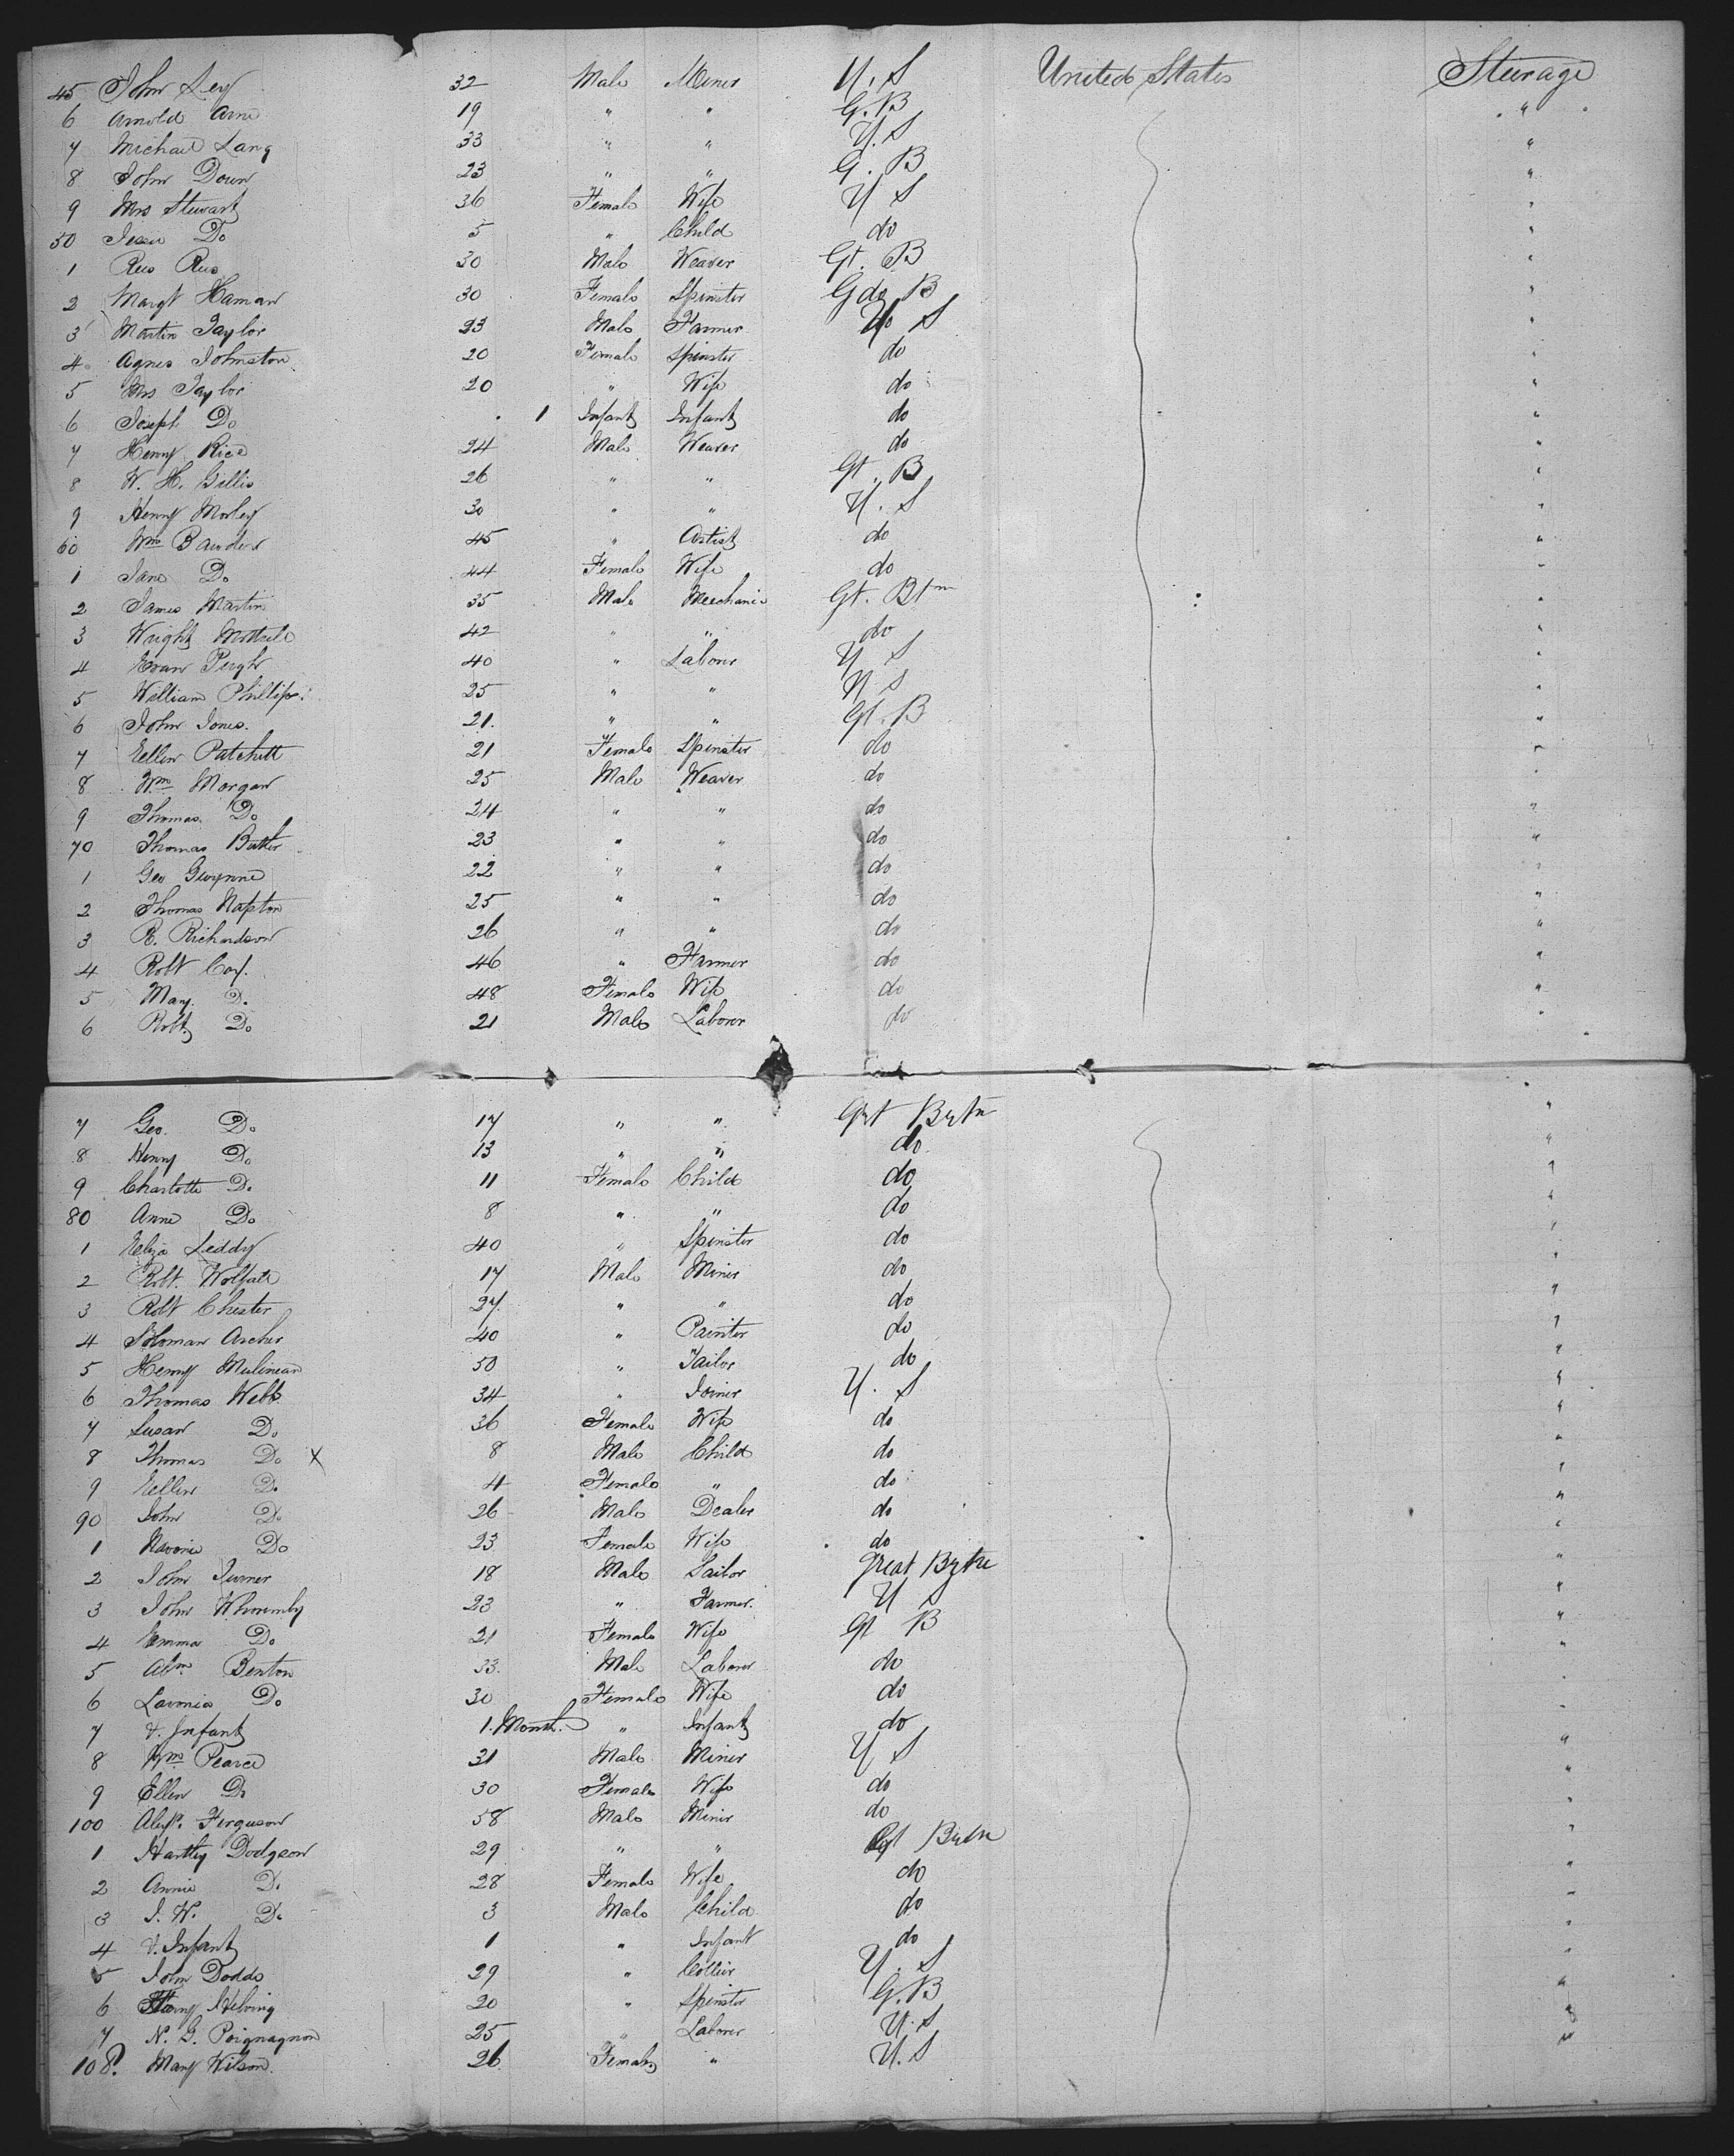 45 John Ley 32 Male Miner U. S United States Steerage
6 Arnold Arne 19 " " G. B "
7 Michael Lang 33 " " U. S "
8 John Down 23 " " G. B "
9 Mrs Stewart 36 Female Wife U S "
50 Jessie Do 5 " Child do "
1 Rees Rees 30 Male Weaver Gt. B "
2 Margt Haman 30 Female Spinster G do B "
3 Martin Taylor 23 Male Farmer U S "
4 Agnes Johnston 20 Female Spinster do "
5 Mrs Taylor 20 " Wife do "
6 Joseph Do 1 Infant Infant do "
7 Henry Rice 24 Male Weaver do "
8 W. H. Gillis 26 " " Gt. B "
9 Henry Morley 30 " " U. S "
60 Wm Bawden 45 " Artist do "
1 Jane Do 44 Female Wife do "
2 James Martin 35 Male Mechanic Gt. Btn "
3 Wright 42 " " do "
4 Evan Pugh 40 " Labour U S "
5 William Phillips 25 " " U S "
6 John Jones. 21. " " Gt. B "
7 Ellen Patchett 21 Female Spinster do "
8 Wm Morgan 25 Male Weaver do "
9 Thomas Do 24 " " do "
70 Thomas Butler 23 " " do "
1 Geo Gwynne 22 " " do "
2 Thomas Napton 25 " " do "
3 R. Richardson 26 " " do "
4 Robt Cox. 46 " Farmer do "
5 Mary. D. 48 Female Wife do "
6 Robt Do 21 Male Laborer do "
7 Geo. Do 17 " " Grt Brtn "
8 Henry Do 13 " " do "
9 Charlotte D. 11 Female Child do "
80 Anne Do 8 " " do "
1 Eliza Leddy 40 " Spinster do "
2 Robt. 17 Male Miner do "
3 Robt Chester 27. " " do "
4 Soloman Archer 40 " Painter do "
5 Henry Mulinean 50 " Tailor do "
6 Thomas Webb 34 " Joiner U. S "
7 Susan D. 36 Female Wife do "
8 Thomas Do X 8 Male Child do "
9 Ellen D. 4 Female " do "
90 John D. 26 Male Dealer do "
1 Do 23 Female Wife do "
2 John Turner 18 Male Sailor Great Brtn "
3 John Whormby 23 " Farmer. U S "
4 Emma Do 21 Female Wife Gt B "
5 Abm Benton 33. Male Laborer do "
6 Lavonia Do 30 Female Wife do "
7 & Infant 1. Month. " Infant do "
8 Wm Pearce 31 Male Miner U S "
9 Ellen Do 30 Female Wife do "
100 Alexr. Ferguson 58 Male Miner do "
1 Hartley Dodgson 29 " " Gt Brtn "
2 Annie D. 28 Female Wife do "
3 J. W. Do 3 Male Child do "
4 & Infant 1 " Infant do "
5 John Dodds 29 " Collier U. S "
6 20 " Spinster G. B "
7 N. G. Poignagnon 25 " Laborer U. S "
108. Mary Wilson. 26 Female " U. S "